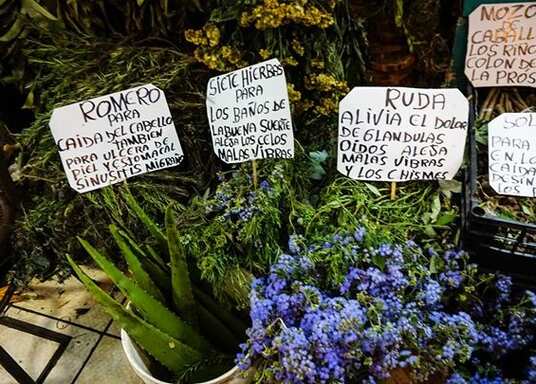 ROMERO
PARA
CAIDA DEL CABELLO
TAMBIEN
PARA ULCERA DE
PIEL Y ESTOMACAL
SINUSITIS MIGRAÑA
SIETE HIERBAS
PARA
LOS BAÑOS DE
LA BUENA SUERTE
ALEJA LOS CELOS
MALAS VIBRAS
RUDA
ALIVIA EL DOLOR
DE GLANDULAS
OIDOS ALEJA
MALAS VIBRAS
Y LOS CHISMES
MOZO
DE
CABALL
LOS RIÑO
COLON DE
LA PRÓS
SOL
PARA
EN LO
CAIDA
DESIN
LOS R